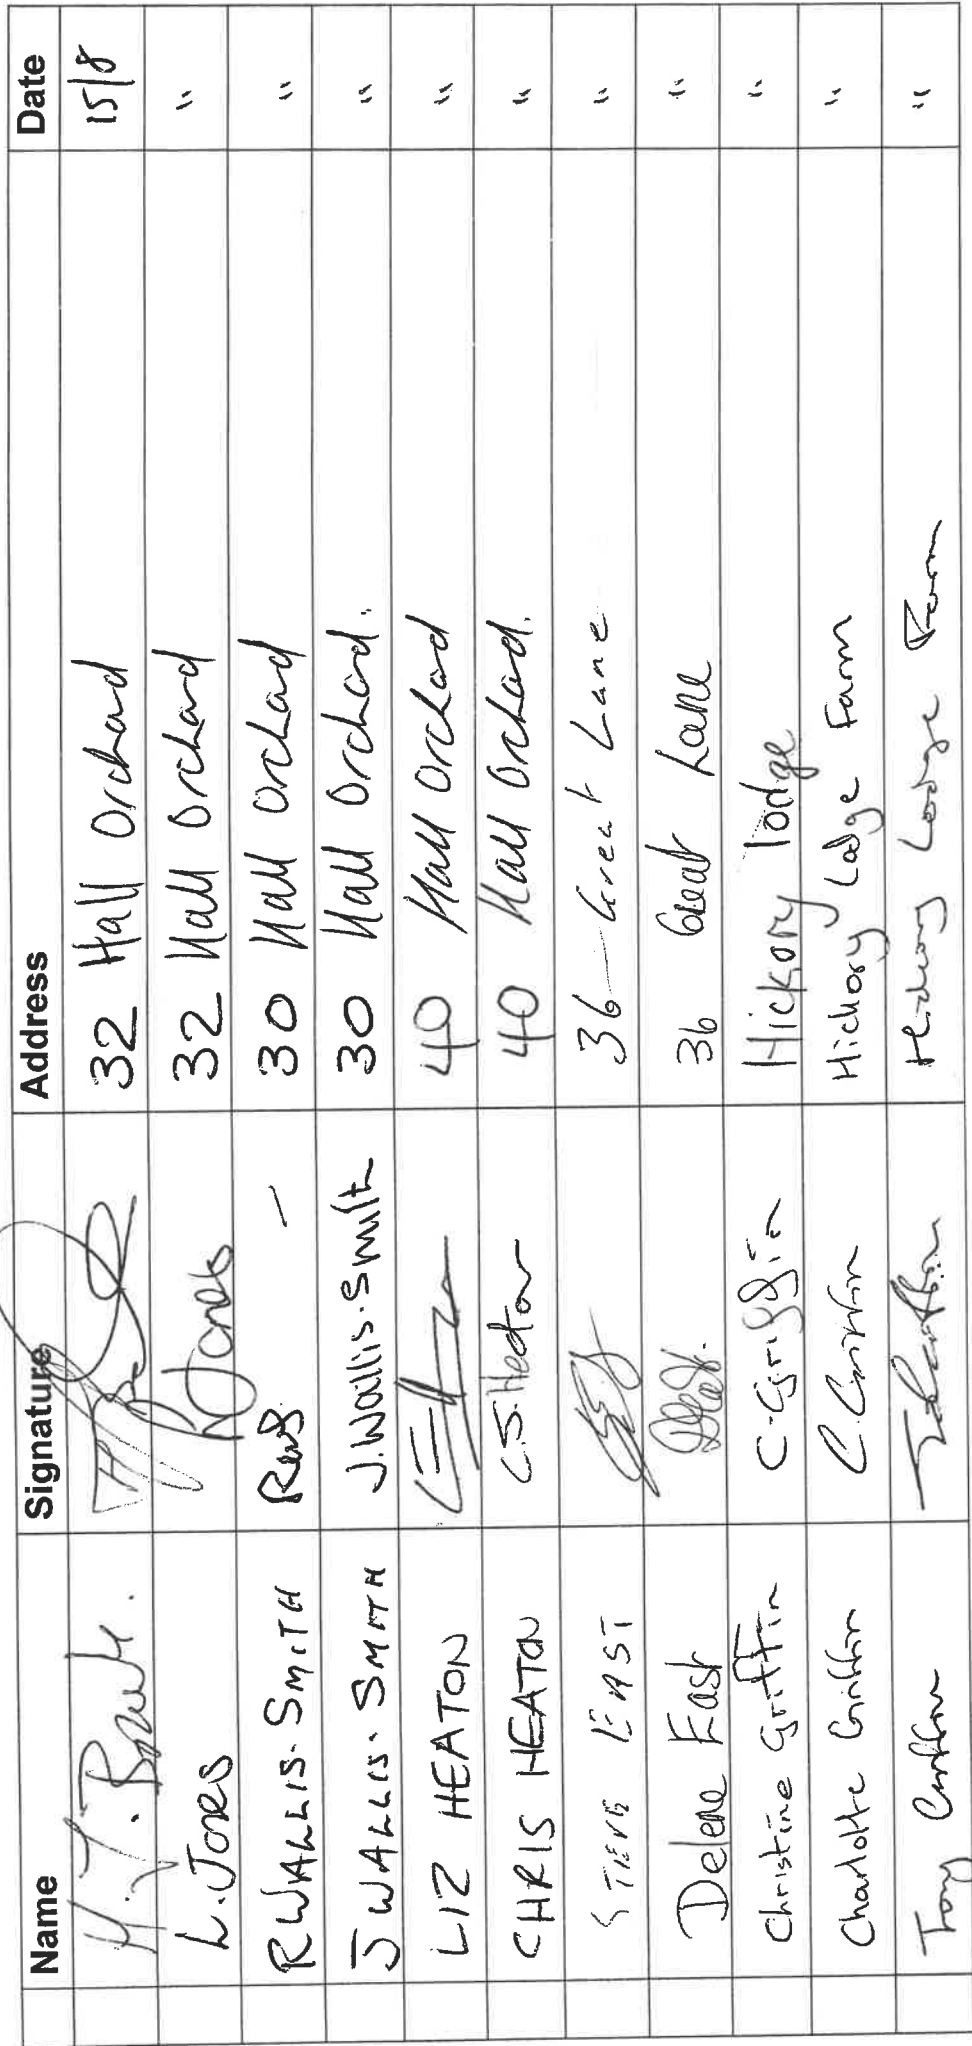 Name Signature Address Date
H.J. 32 Hall Orchard 15/8
L. Jones Jones 32 Hall Orchard "
R WALLIS-SMITH RWS — 30 Hall Orchard "
J WALLIS-SMITH J. Wallis-Smith 30 Hall Orchard. "
LIZ HEATON 40 Hall Orchard "
CHRIS HEATON C.S. Heaton 40 Hall Orchard. "
STEVE EAST 36 Great Lane "
Delene East 36 Great Lane "
Christine Griffin C. Griffin Hickory lodge "
Charlotte Griffin C. Griffin Hickory Lodge Farm "
Tony Griffin Hickory Lodge Farm "